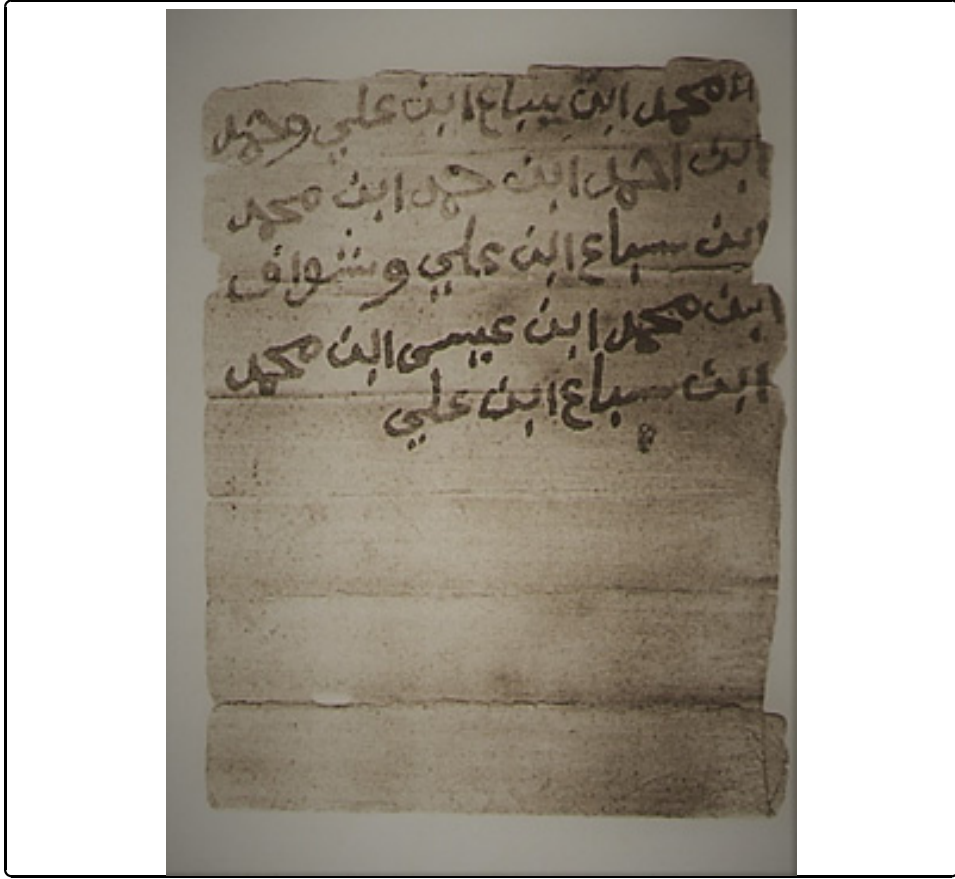 محمد ابن سباع ابن علي وحمد
ابن احمد ابن حمد ابن محمد
ابن سباع ابن علي وشواف
ابن محمد ابن عيسى ابن محمد
ابن سباع ابن علي